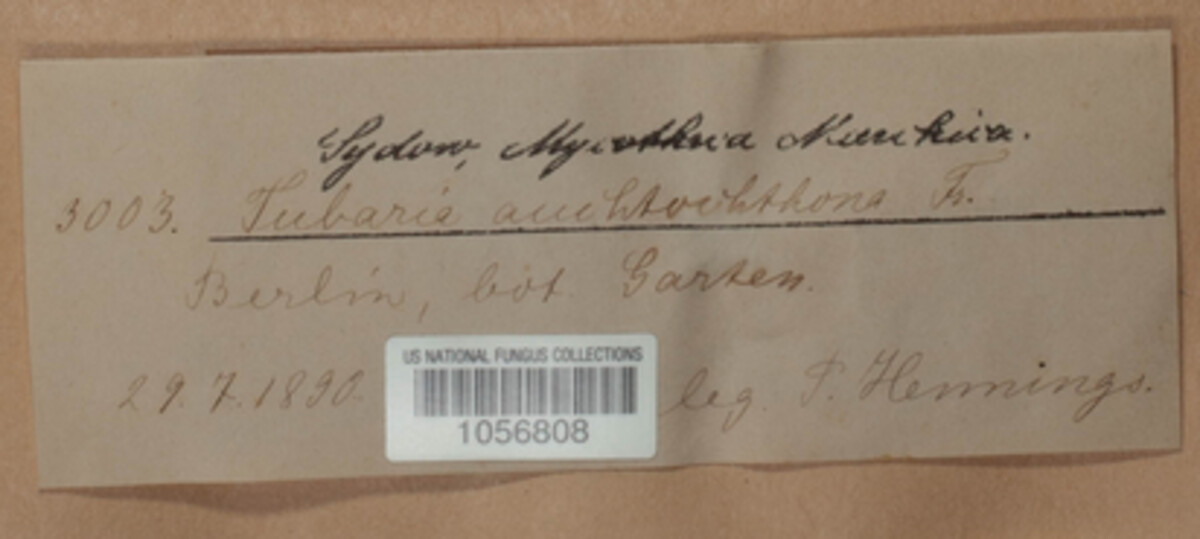 Sydow, Mycotheca Marchica.
3003. Tubaria auchtochthona Fr.
Berlin, bot. Garten.
29.7.1890.
leg. P. Hennings.
US NATIONAL FUNGUS COLLECTIONS
1056808